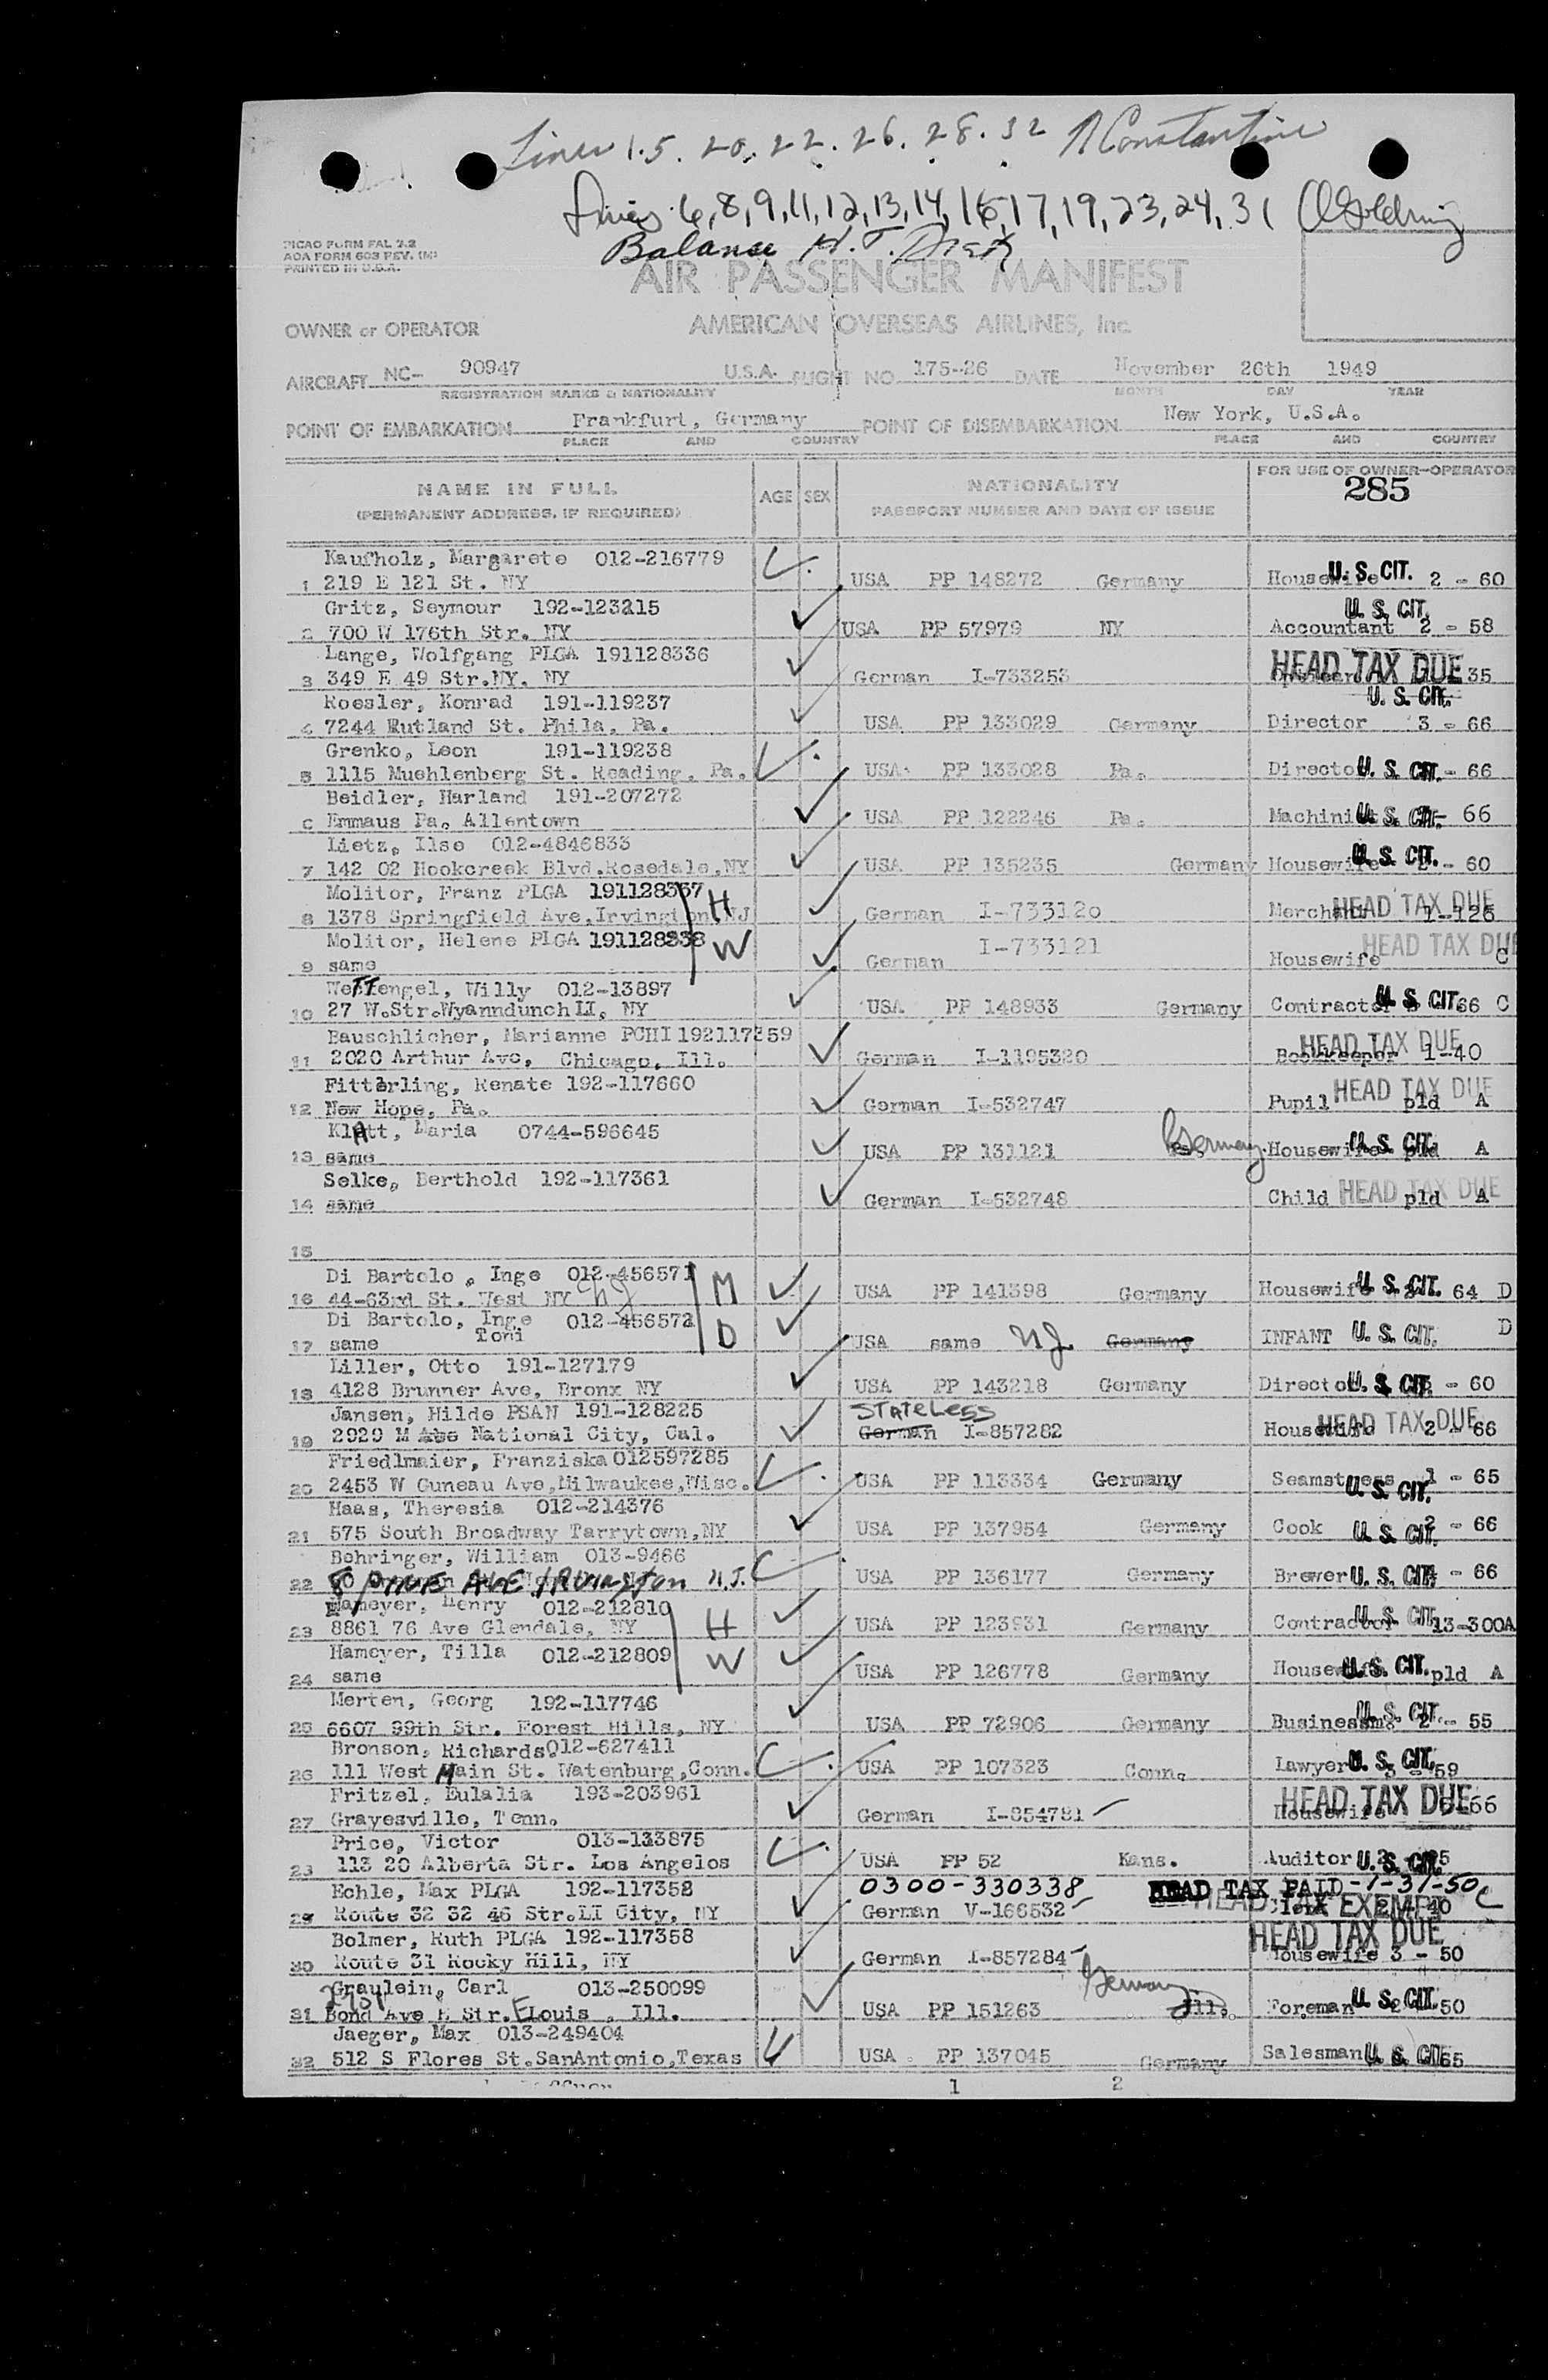 Lines 1. 5. 20. 22. 26. 28. 32 Constantine
Lines 6, 8, 9, 11, 12, 13, 14, 16, 17, 19, 23, 24, 31
Balance H. T.
PICAO FORM FAL 2.2
AOA FORM 603 REV. (M)
PRINTED IN U.S.A.
AIR PASSENGER MANIFEST
OWNER or OPERATOR AMERICAN OVERSEAS AIRLINES, Inc.
AIRCRAFT NC- 90947 U.S.A. FLIGHT NO. 175-26 DATE November 26th 1949
REGISTRATION MARKS & NATIONALITY MONTH DAY YEAR
POINT OF EMBARKATION Frankfurt, Germany POINT OF DISEMBARKATION New York, U.S.A.
PLACE AND COUNTRY PLACE AND COUNTRY
NAME IN FULL AGE SEX NATIONALITY FOR USE OF OWNER-OPERATOR
(PERMANENT ADDRESS, IF REQUIRED) PASSPORT NUMBER AND DATE OF ISSUE 285
Kaufholz, Margarete 012-216779
1 219 E 121 St. NY USA PP 148272 Germany Housewife U.S. CIT. 2 - 60
Gritz, Seymour 192-123215 U.S. CIT.
2 700 W 176th Str. NY USA PP 57979 NY Accountant 2 - 58
Lange, Wolfgang PLGA 191128336
3 349 E 49 Str.NY. NY German I-733253 HEAD TAX DUE 35
Roesler, Konrad 191-119237 U.S. CIT.
4 7244 Rutland St. Phila, Pa. USA PP 133029 Germany Director 3 - 66
Grenko, Leon 191-119238
5 1115 Muehlenberg St. Reading, Pa. USA PP 133028 Pa. Director U.S. CIT. - 66
Beidler, Harland 191-207272
6 Emmaus Pa. Allentown USA PP 122246 Pa. Machinist U.S. CIT. - 66
Lietz, Ilse 012-4846833
7 142 02 Hookcreek Blvd.Rosedale,NY USA PP 135235 Germany Housewife U.S. CIT. - 60
Molitor, Franz PLGA 191128337 H
8 1378 Springfield Ave,Irvington,NJ German I-733120 Merchant HEAD TAX DUE 1-126
Molitor, Helene PLGA 191128338 W I-733121 HEAD TAX DUE
9 same German Housewife C
Wettengel, Willy 012-13897
10 27 W.Str.Wyanndunch LI, NY USA PP 148933 Germany Contractor U.S. CIT. 66 C
Bauschlicher, Marianne PCHI 192117359 HEAD TAX DUE
11 2020 Arthur Ave, Chicago, Ill. German I-1195320 Bookkeeper 1-40
Fitterling, Renate 192-117660
12 New Hope, Pa. German I-532747 Pupil HEAD TAX DUE pld A
Klatt, Maria 0744-596645
13 same USA PP 131121 Germany Housewife U.S. CIT. pld A
Selke, Berthold 192-117361
14 same German I-532748 Child HEAD TAX DUE pld A
15
Di Bartolo, Inge 012-456571 M
16 44-63rd St. West NY NJ USA PP 141398 Germany Housewife U.S. CIT. 64 D
Di Bartolo, Inge Toni 012-456572 D
17 same USA same NJ Germany INFANT U.S. CIT. D
Liller, Otto 191-127179
18 4128 Brunner Ave, Bronx NY USA PP 143218 Germany Director U.S. CIT. - 60
Jansen, Hilde PSAN 191-128225 STATELESS
19 2020 M Ave National City, Cal. German I-857282 Housewife HEAD TAX DUE 2 - 66
Friedlmaier, Franziska 012597285
20 2453 W Cuneau Ave,Milwaukee,Wisc. USA PP 113334 Germany Seamstress U.S. CIT. 1 - 65
Haas, Theresia 012-214376
21 575 South Broadway Tarrytown,NY USA PP 137954 Germany Cook U.S. CIT. 2 - 66
Behringer, William 013-9466
22 PINE AVE IRVINGTON N.J. USA PP 136177 Germany Brewer U.S. CIT. - 66
Hameyer, Henry 012-212810 H
23 8861 76 Ave Glendale, NY USA PP 123931 Germany Contractor U.S. CIT. 13-300A
Hameyer, Tilla 012-212809 W
24 same USA PP 126778 Germany Housewife U.S. CIT. pld A
Merten, Georg 192-117746
25 6607 99th Str. Forest Hills, NY USA PP 72906 Germany Businessm. U.S. CIT. 2 - 55
Bronson, Richards 012-627411
26 111 West Main St. Watenburg,Conn. USA PP 107323 Conn. Lawyer U.S. CIT. 3 - 59
Fritzel, Eulalia 193-203961
27 Graysville, Tenn. German I-854781 Housewife HEAD TAX DUE 66
Price, Victor 013-133875
28 113 20 Alberta Str. Los Angelos USA PP 52 Kans. Auditor U.S. CIT.
Echle, Max PLGA 192-117352 0300-330338 HEAD TAX PAID-1-31-50
29 Route 32 32 46 Str.LI City, NY German V-166532 HEAD TAX EXEMPT Clerk 2 - 40 C
Bolmer, Ruth PLGA 192-117358 HEAD TAX DUE
30 Route 31 Rocky Hill, NY German I-857284 Housewife 3 - 50
Graulein, Carl 013-250099 Germany
31 Bond Ave E Str. ELouis, Ill. USA PP 151263 Ill. Foreman U.S. CIT. 50
Jaeger, Max 013-249404
32 512 S Flores St.SanAntonio,Texas USA PP 137045 Germany Salesman U.S. CIT. 65
1 2